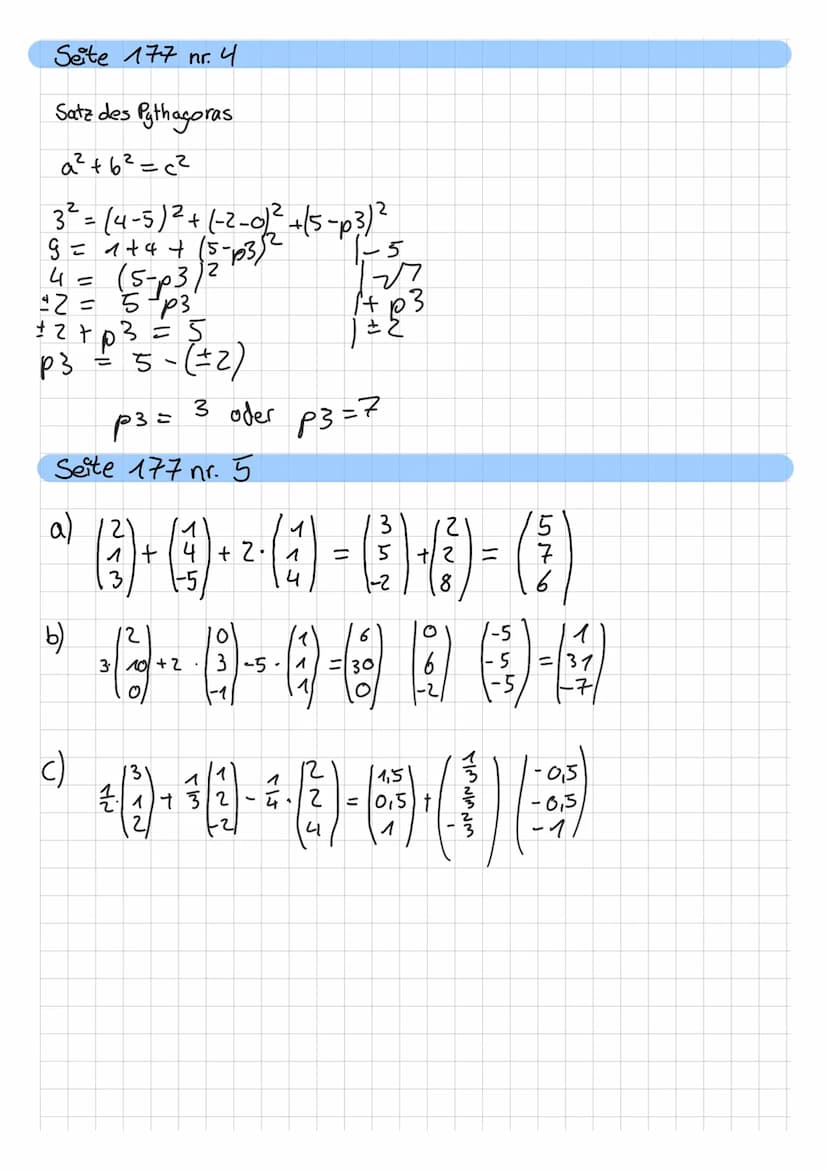 Seite 177 nr. 4
Satz des Pythagoras
a² + b² = c²
3² = (4-5)² + (-2-0)² + (5-p3)²
9 = 1+4 + (5-p3)² |-5
4 = (5-p3)² |√
±2 = 5-p3 |+ p3
±2 + p3 = 5 |±2
p3 = 5 - (±2)
p3 = 3 oder p3 = 7
Seite 177 nr. 5
a) (2 1 3) + (1 4 -5) + 2· (1 1 4) = (3 5 -2) + (2 2 8) = (5 7 6)
b) 3· (2 10 0) + 2 · (0 3 -1) -5 · (1 1 1) = (6 30 0) (0 6 -2) (-5 -5 -5) = (1 31 -7)
c) 1/2 · (3 1 2) + 1/3 (1 2 -2) - 1/4 · (2 2 4) = (1,5 0,5 1) + (1/3 2/3 -2/3) (-0,5 -0,5 -1)